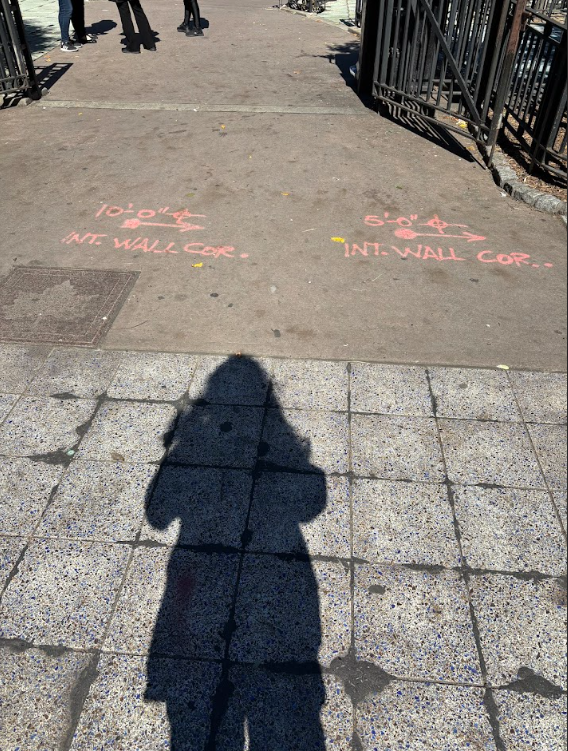 10'-0"
INT. WALL COR.
5'-0"
INT. WALL COR..